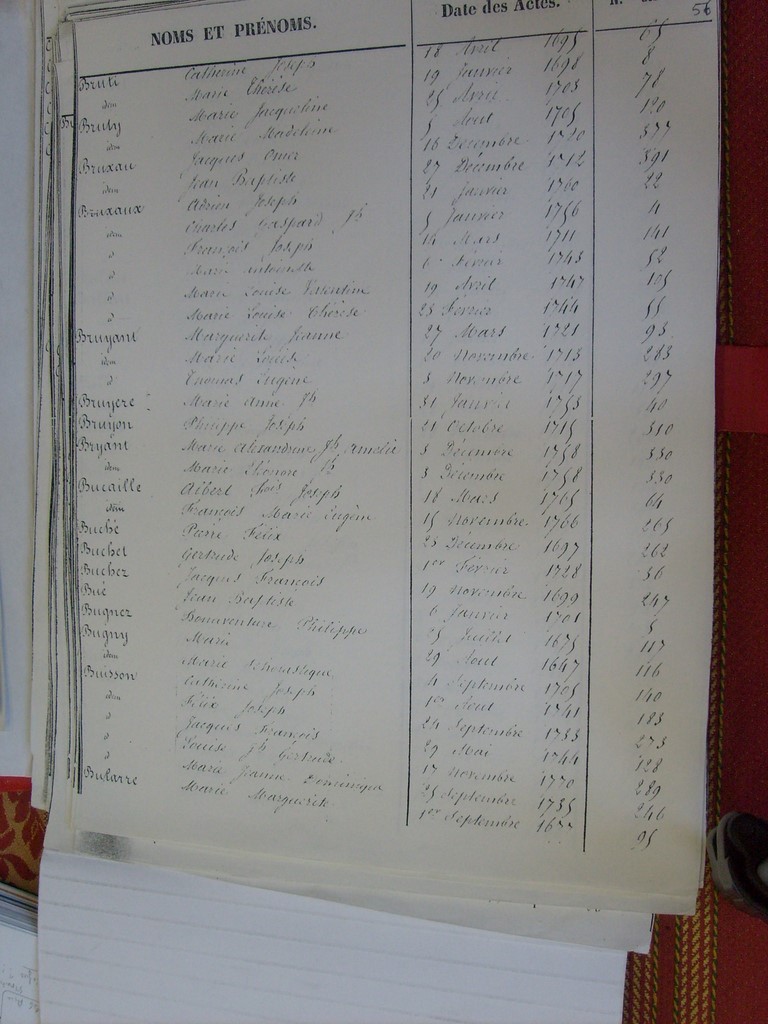 56
NOMS ET PRÉNOMS. Date des Actes.
Bruti Catherine Joseph 18 Avril 1695 65
idem Marie Thérèse 19 Janvier 1698 8
Bruty Marie Jacqueline 25 Avril 1703 78
idem Marie Madeleine 5 Aout 1705 120
Bruxau Jacques Omer 16 Decembre 1720 377
idem Jean Baptiste 27 Décembre 1712 391
Bruxaux Adrien Joseph 21 Janvier 1760 22
idem Charles Gaspard Jh 5 Janvier 1756 4
d François Joseph 14 Mars 1711 141
d Marie Antoinette 6 Fevrier 1743 52
d Marie Louise Valentine 19 Avril 1747 105
d Marie Louise Thérèse 25 Février 1744 55
Bruyant Marguerite Jeanne 27 Mars 1721 93
idem Marie Louise 20 Novembre 1713 283
d Thomas Eugene 8 Novembre 1717 297
Bruyere Marie Anne Jh 31 Janvier 1753 40
Bruyon Philippe Joseph 21 Octobre 1715 310
Bryant Marie Alexandrine Jh Amelie 3 Décembre 1758 330
idem Marie Eléonore Jh 3 Décembre 1758 330
Bucaille Albert Fois Joseph 18 Mars 1765 64
idem François Marie Eugène 15 Novembre 1766 265
Buché Pierre Félix 28 Décembre 1697 262
Buchet Gertrude Joseph 1er Février 1728 36
Buchez Jacques François 19 Novembre 1699 247
Bué Jean Baptiste 6 Janvier 1701 5
Bugnez Bonaventure Philippe 25 Juillet 1675 117
Bugny Marie 29 Aout 1647 116
idem Marie Scholastique 4 Septembre 1705 140
Buisson Catherine Joseph 1er Aout 1741 183
idem Félix Joseph 24 Septembre 1733 273
d Jacques François 29 Mai 1744 128
d Louise Jh Gertrude 17 Novembre 1770 289
d Marie Jeanne Dominique 25 Septembre 1735 246
Bularre Marie Marguerite 1er Septembre 1677 95